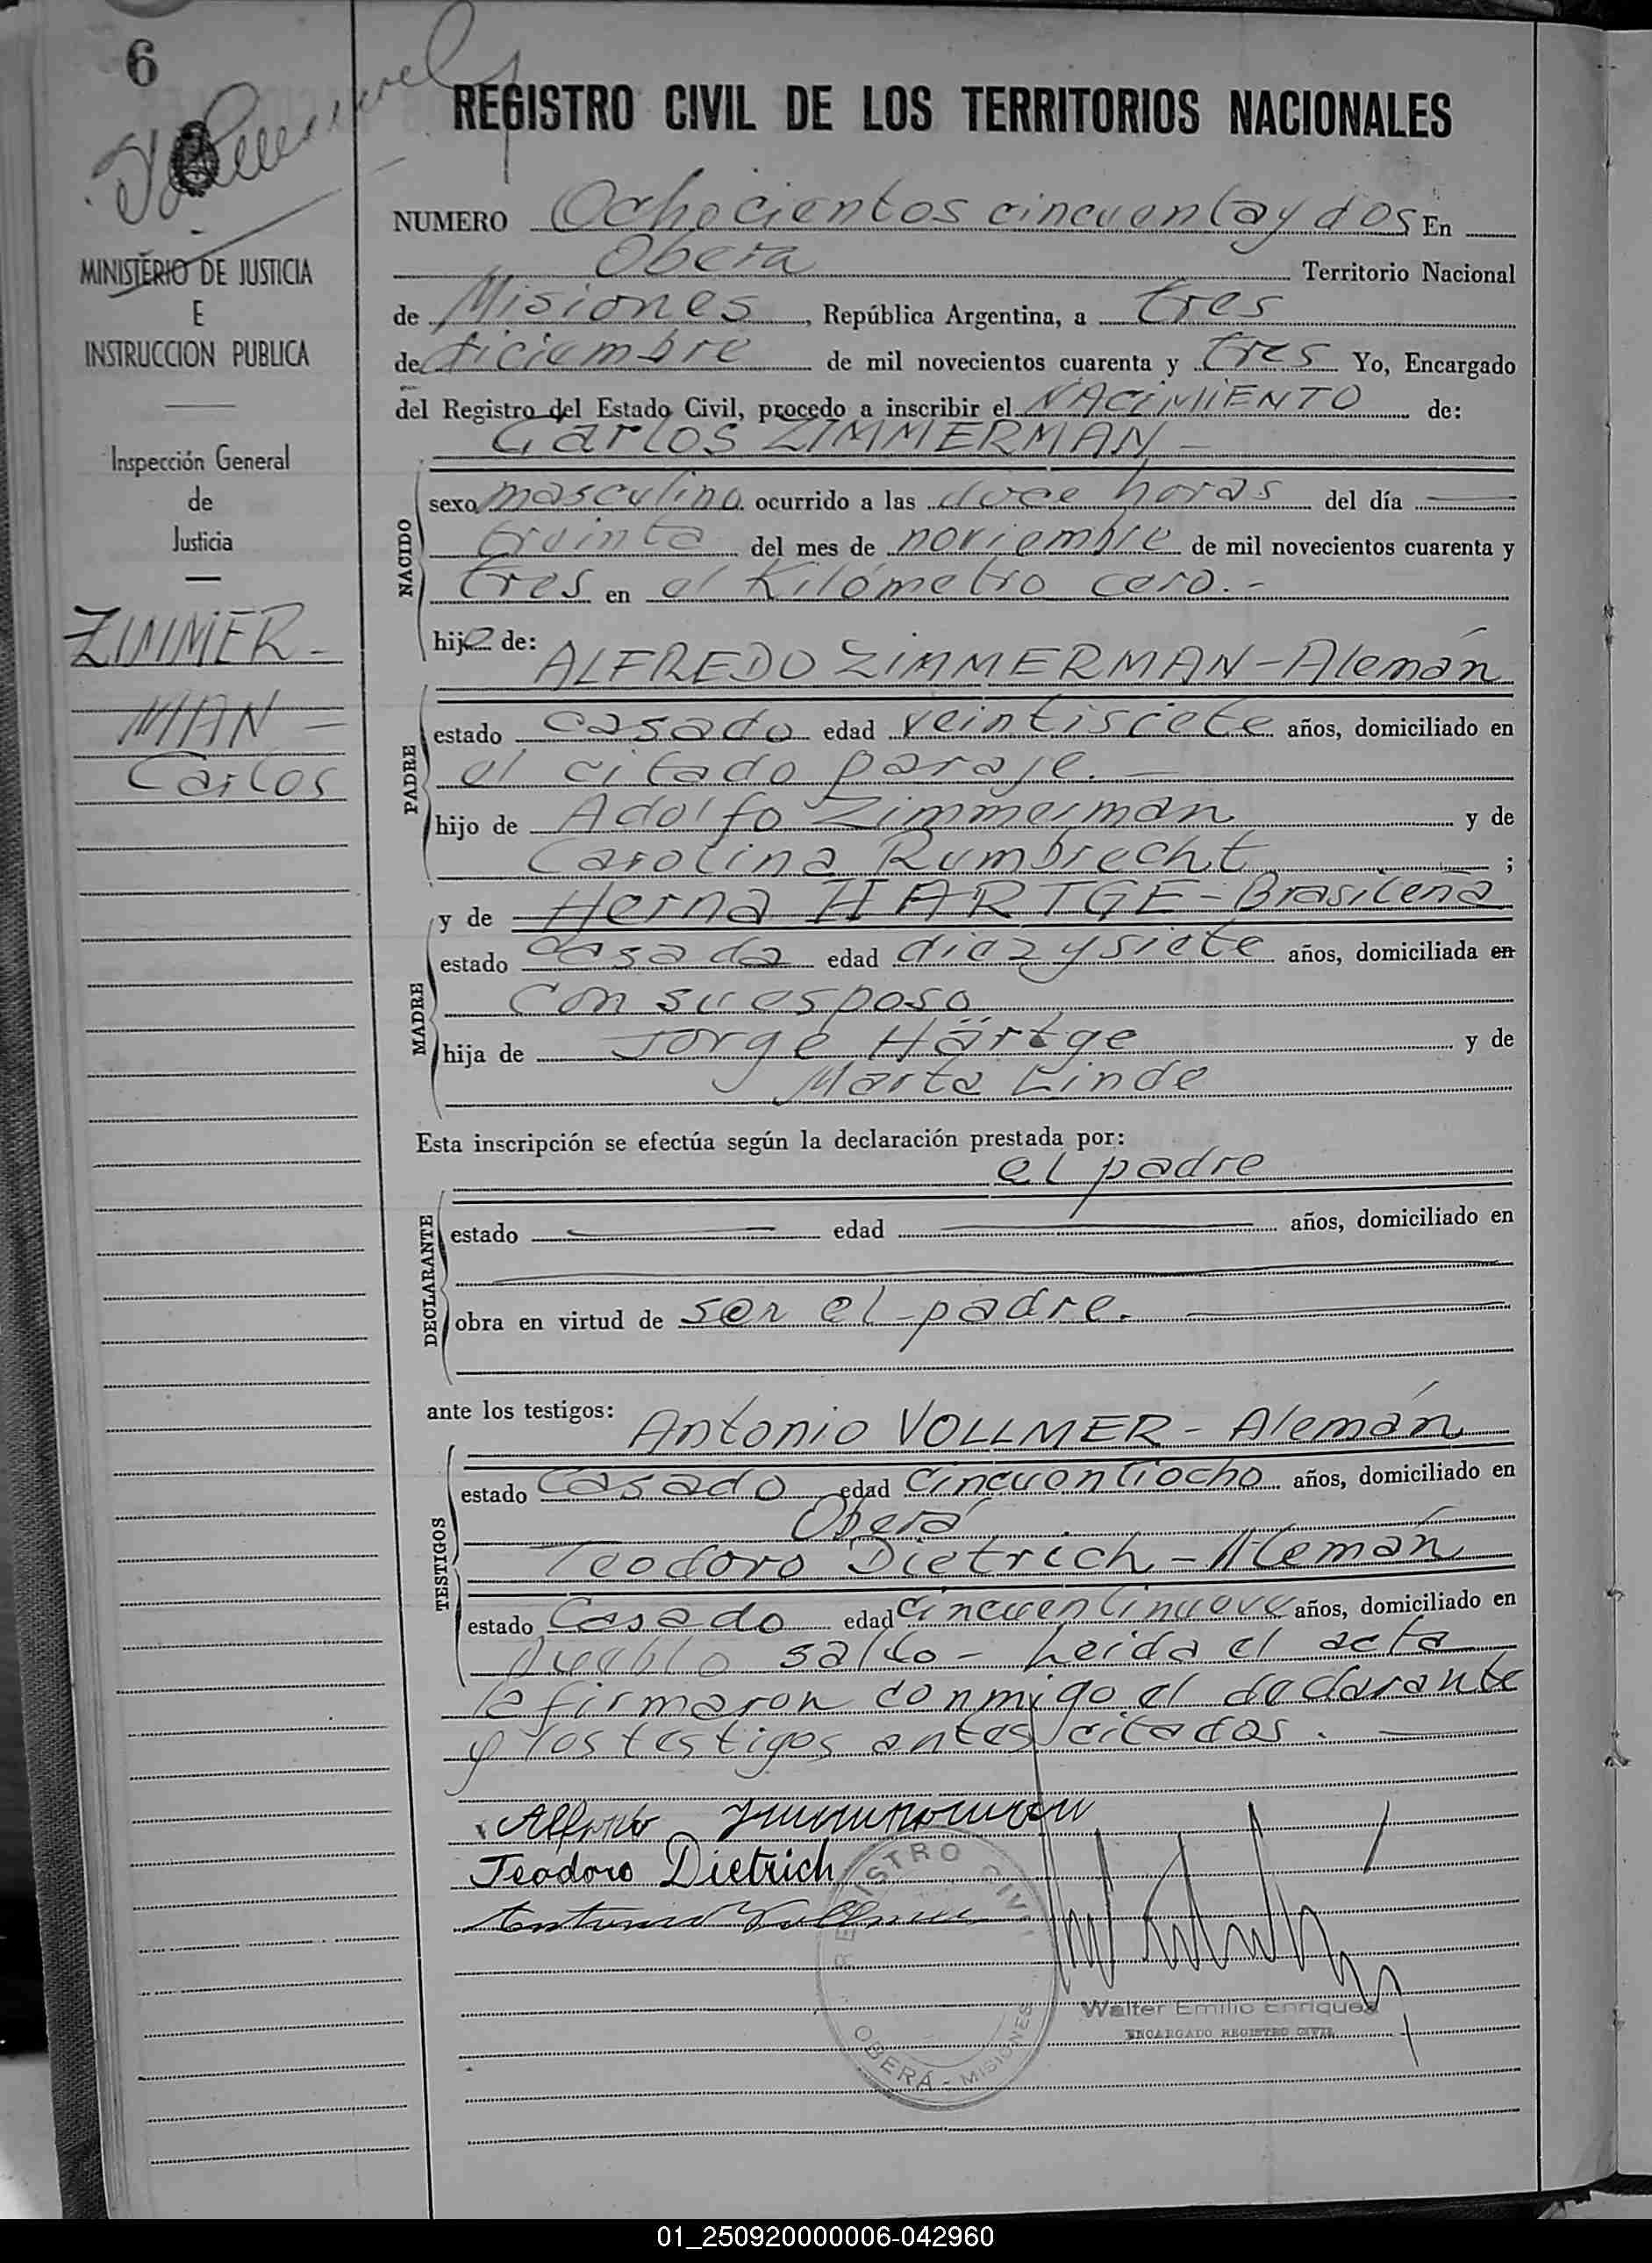 6
REGISTRO CIVIL DE LOS TERRITORIOS NACIONALES
MINISTERIO DE JUSTICIA
E
INSTRUCCION PUBLICA
Inspección General
de
Justicia
ZIMMER-
MAN -
Carlos
NUMERO Ochocientos cincuenta y dos En
Oberá Territorio Nacional
de Misiones, República Argentina, a tres
de diciembre de mil novecientos cuarenta y tres Yo, Encargado
del Registro del Estado Civil, procedo a inscribir el NACIMIENTO de:
Carlos ZIMMERMAN -
NACIDO
sexo masculino ocurrido a las doce horas del día
treinta del mes de noviembre de mil novecientos cuarenta y
tres en el Kilómetro cero.-
hijo de:
ALFREDO ZIMMERMAN - Alemán
PADRE
estado casado edad veintisiete años, domiciliado en
el citado paraje. -
hijo de Adolfo Zimmerman y de
Carolina Rumbrecht ;
y de Herna HARTGE - Brasileña
MADRE
estado casada edad diez y siete años, domiciliada en
con su esposo
hija de Jorge Härtge y de
Marta Linde
Esta inscripción se efectúa según la declaración prestada por:
el padre
DECLARANTE
estado edad años, domiciliado en
obra en virtud de ser el padre.
ante los testigos:
Antonio VOLLMER - Alemán
TESTIGOS
estado Casado edad cincuentiocho años, domiciliado en
Oberá
Teodoro Dietrich - Alemán
estado Casado edad cincuentinueve años, domiciliado en
Pueblo salto - Leida el acta
la firmaron conmigo el declarante
y los testigos antes citados.
Alfredo Zimmerman
Teodoro Dietrich
Antonio Vollmer
REGISTRO CIVIL
OBERÁ - MISIONES
Walter Emilio Enriquez
ENCARGADO REGISTRO CIVIL
01_250920000006-042960